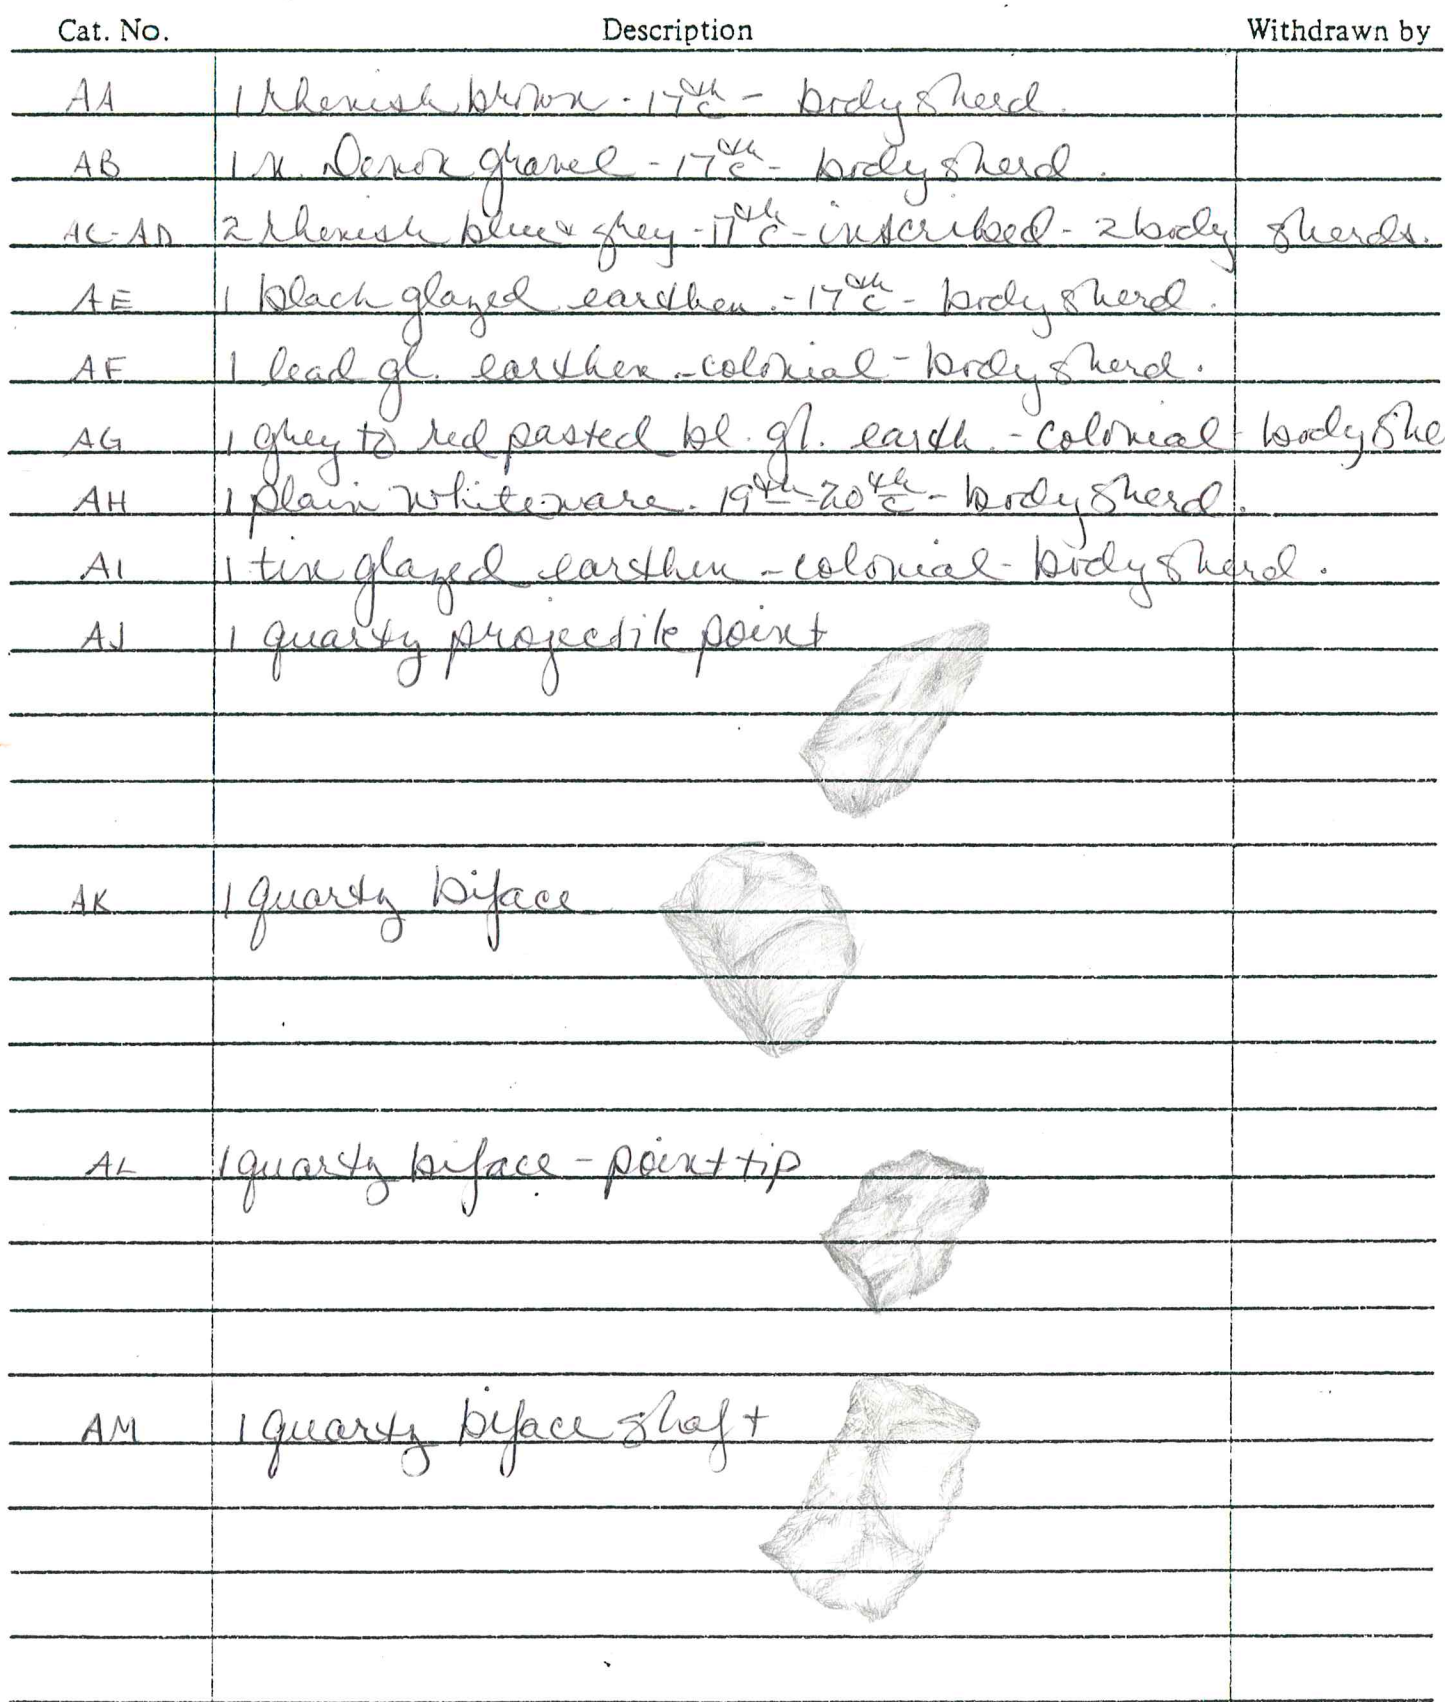 Cat. No. Description Withdrawn by
AA 1 Rhenish brown - 17th c - body sherd.
AB 1 N. Devon gravel - 17th c - body sherd.
AC-AD 2 Rhenish blue & grey - 17th c - inscribed - 2 body sherds.
AE 1 black glazed earthen. - 17th c - body sherd.
AF 1 lead gl. earthen - colonial - body sherd.
AG 1 grey to red pasted bl. gl. earth. - colonial - body she
AH 1 plain whiteware. 19th-20th c - body sherd.
AI 1 tin glazed earthen - colonial - body sherd.
AJ 1 quartz projectile point
AK 1 quartz biface
AL 1 quartz biface - point tip
AM 1 quartz biface shaft